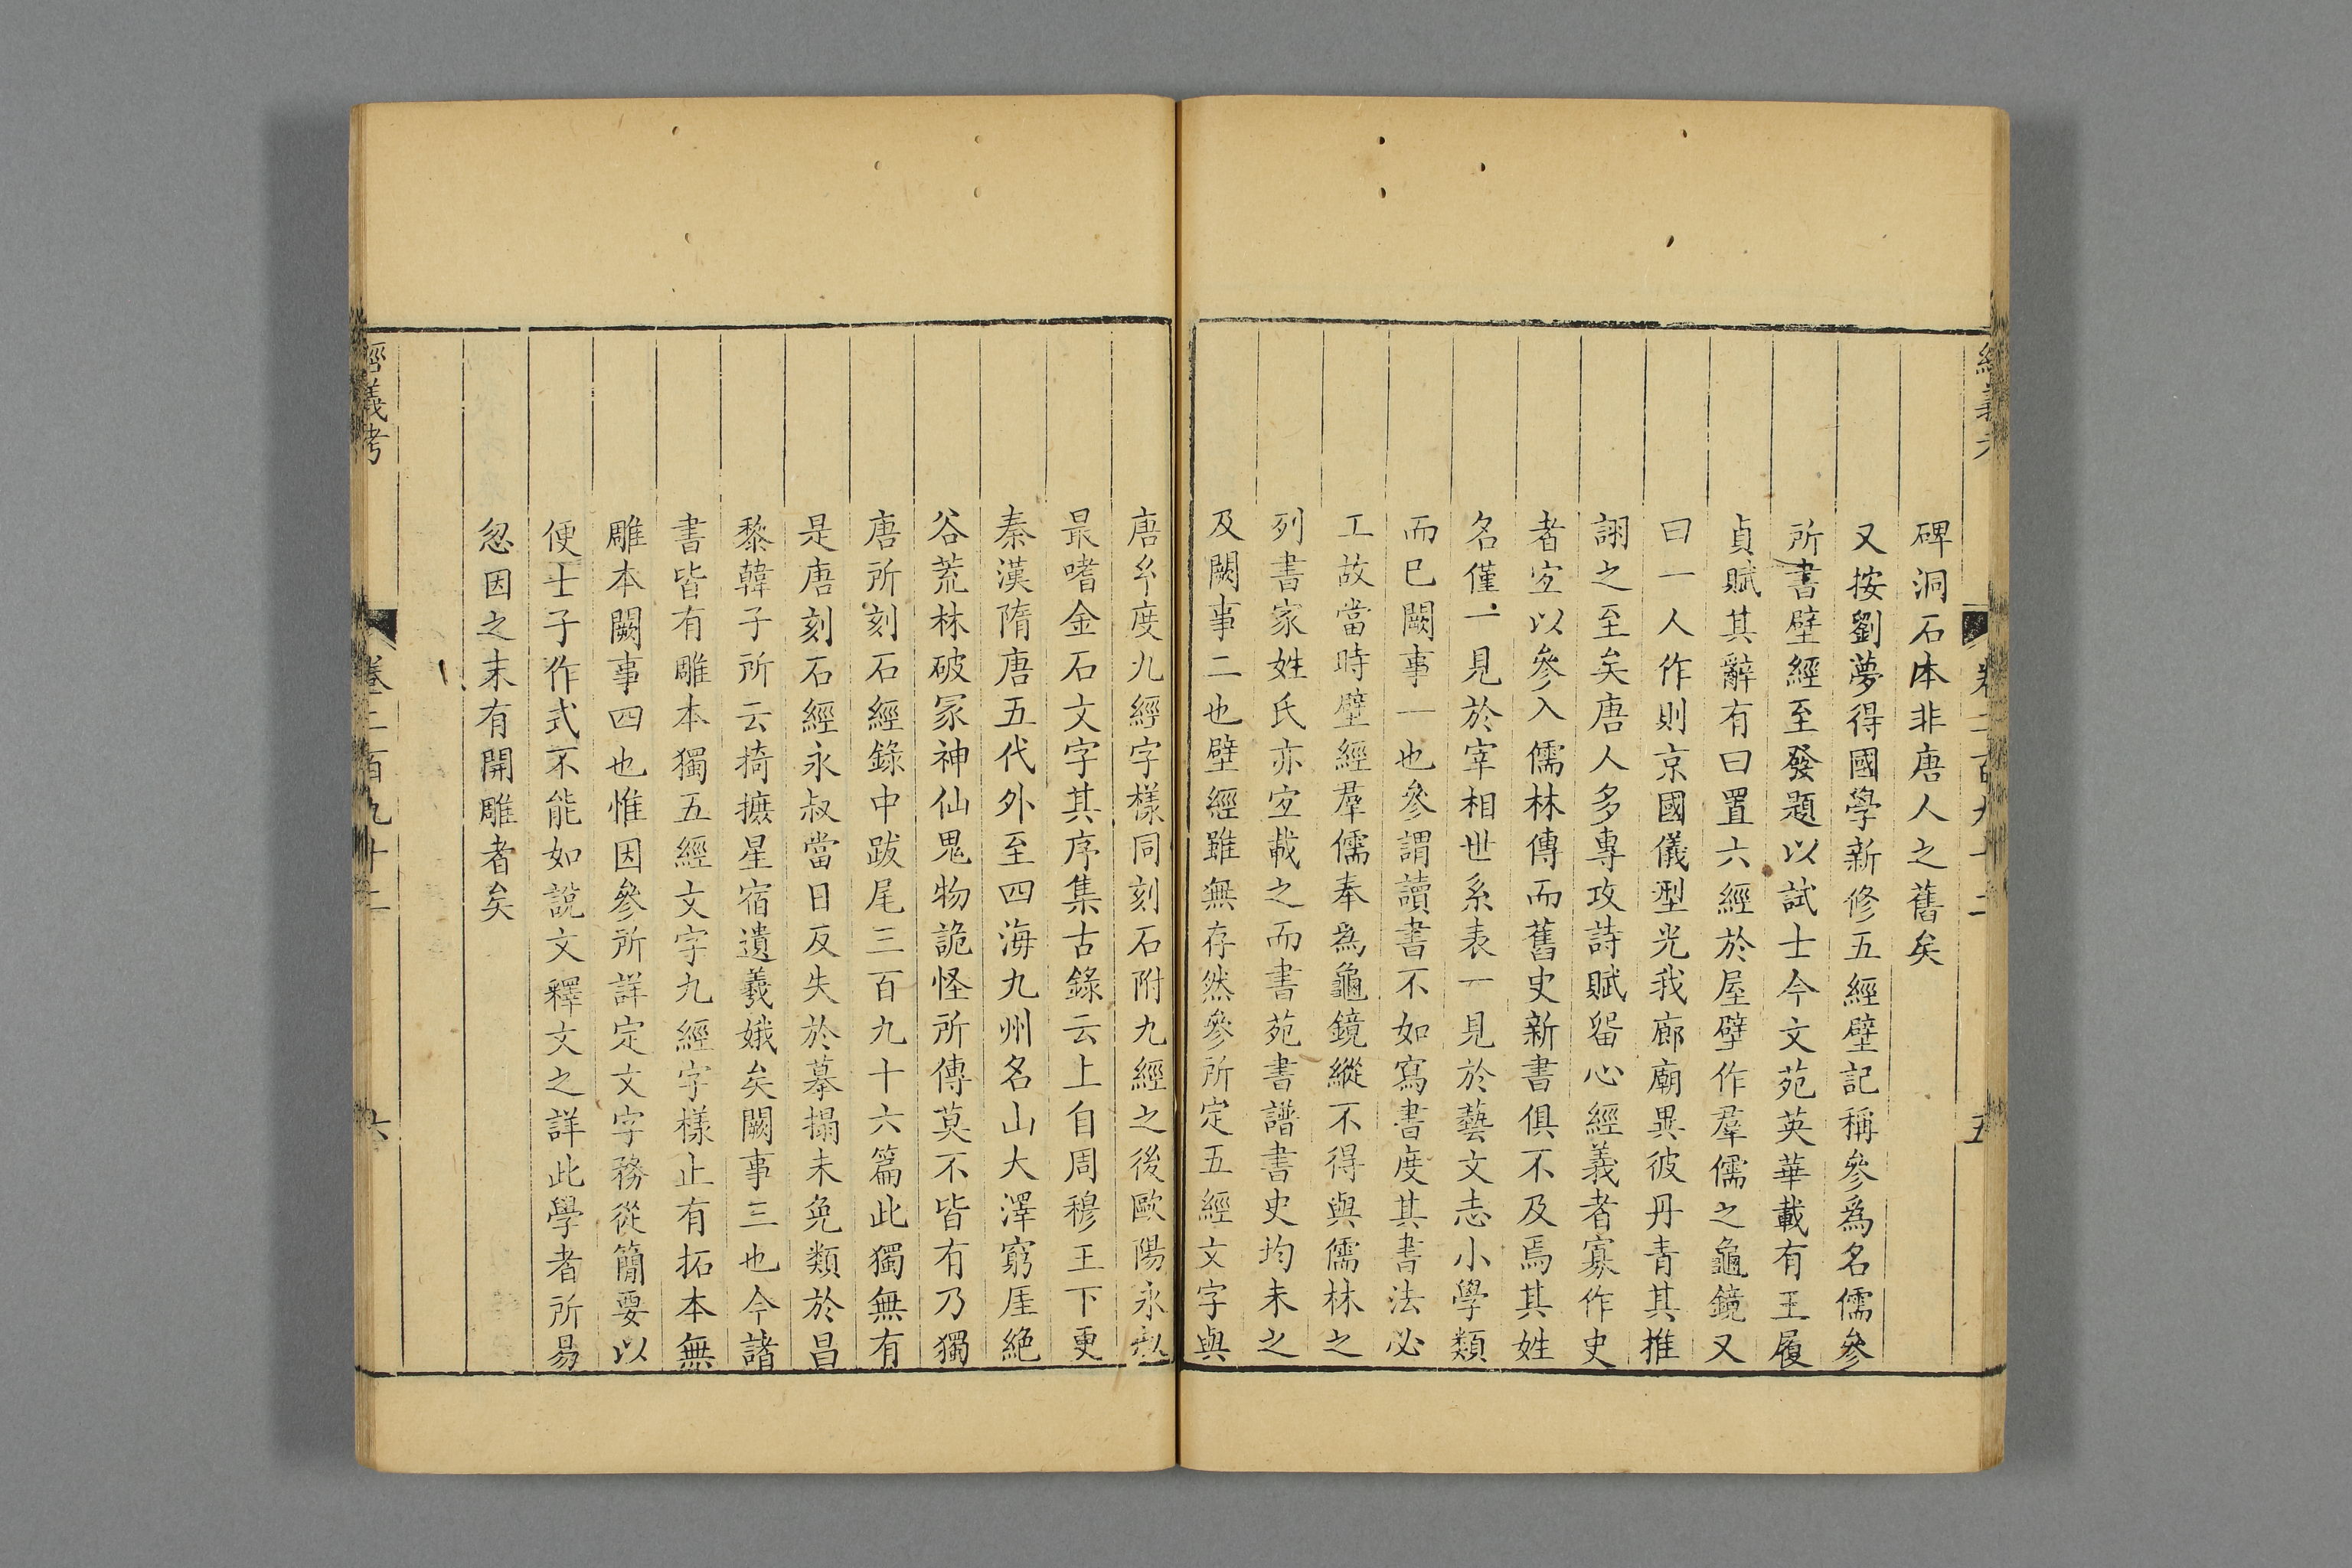 經義考
卷二百九十二
五
碑洞石本非唐人之舊矣
又按劉夢得國學新修五經壁記稱參爲名儒參
所書壁經至發題以試士今文苑英華載有王履
貞賦其辭有曰置六經於屋壁作羣儒之龜鏡又
曰一人作則京國儀型光我廊廟異彼丹青其推
詡之至矣唐人多專攻詩賦畱心經義者寡作史
者宐以參入儒林傳而舊史新書俱不及焉其姓
名僅一見於宰相世系表一見於藝文志小學類
而已闕事一也參謂讀書不如寫書度其書法必
工故當時壁經羣儒奉爲龜鏡縱不得與儒林之
列書家姓氏亦宐載之而書苑書譜書史均未之
及闕事二也壁經雖無存然參所定五經文字與
唐𤣥度九經字樣同刻石附九經之後歐陽永叔
最嗜金石文字其序集古錄云上自周穆王下更
秦漢隋唐五代外至四海九州名山大澤窮厓絶
谷荒林破冢神仙鬼物詭怪所傳莫不皆有乃獨
唐所刻石經錄中跋尾三百九十六篇此獨無有
是唐刻石經永叔當日反失於摹搨未免類於昌
黎韓子所云掎摭星宿遺羲娥矣闕事三也今諸
書皆有雕本獨五經文字九經字樣止有拓本無
雕本闕事四也惟因參所詳定文字務從簡要以
便士子作式不能如說文釋文之詳此學者所易
忽因之未有開雕者矣
經義考
卷二百九十二
六